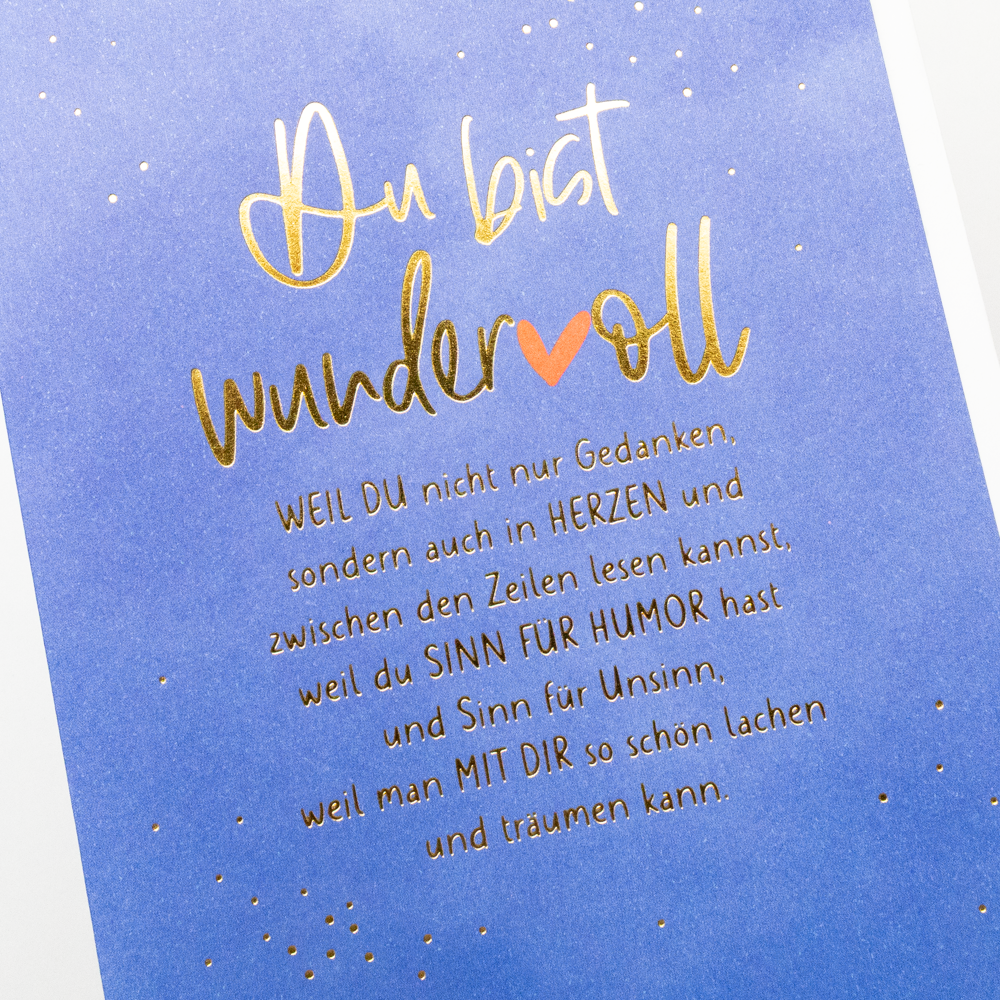 Du bist
wunder♥oll
WEIL DU nicht nur Gedanken,
sondern auch in HERZEN und
zwischen den Zeilen lesen kannst,
weil du SINN FÜR HUMOR hast
und Sinn für Unsinn,
weil man MIT DIR so schön lachen
und träumen kann.